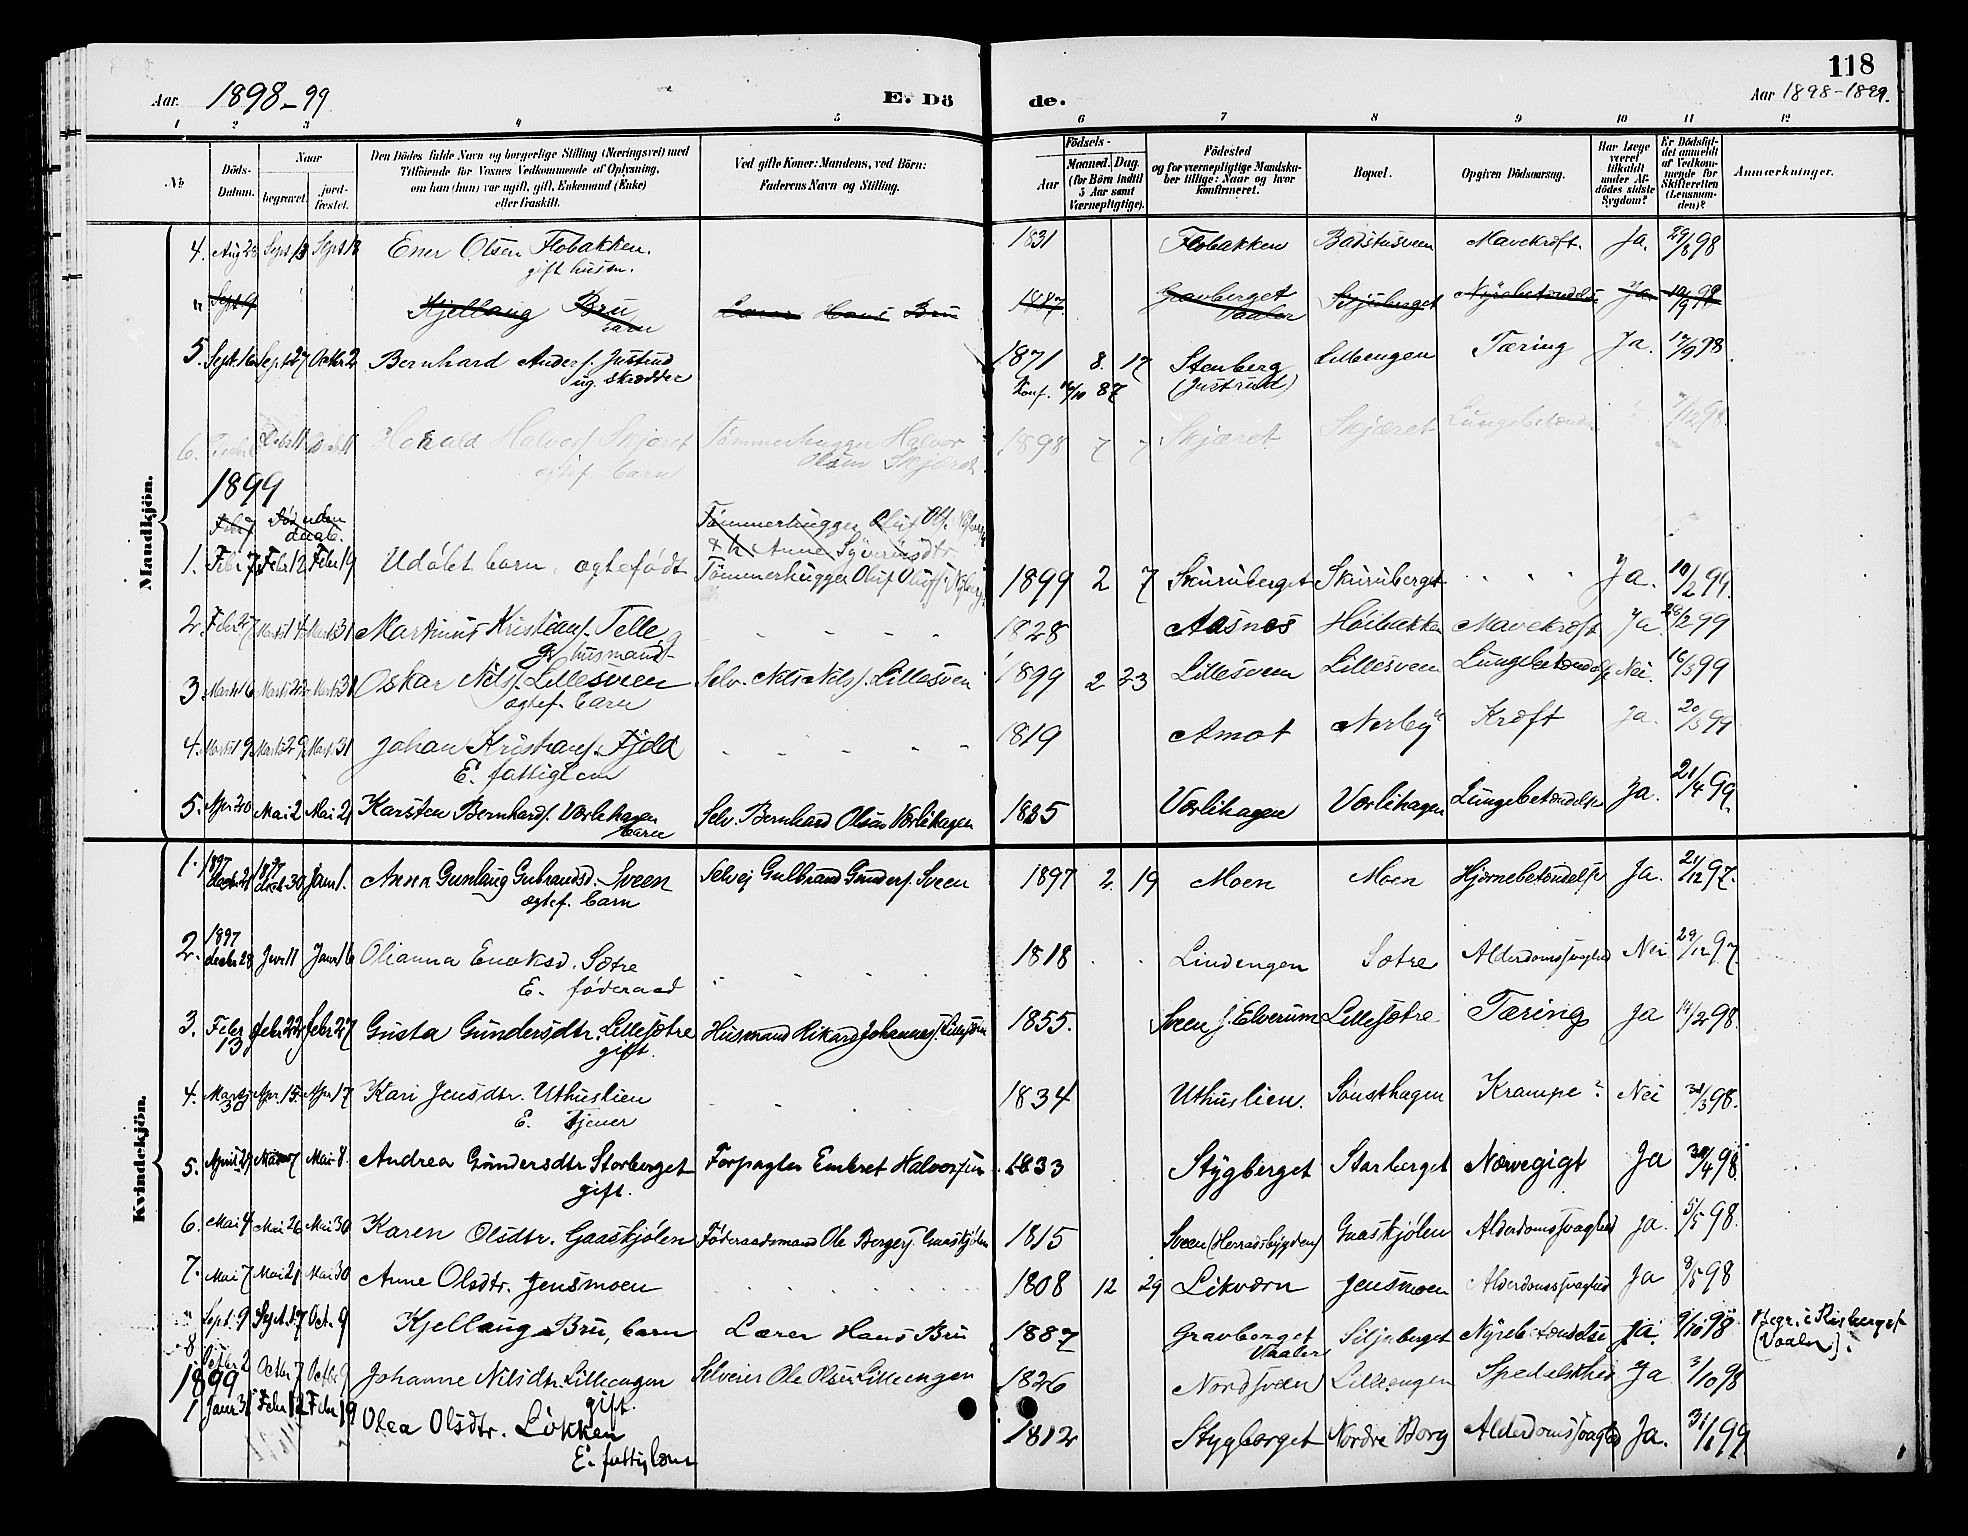 118
Aar. 1898-99
E. Dö de.
Aar 1898-1899.
1 2 3 4 5 6 7 8 9 10 11 12
No.
Döds-Datum.
Naar begravet. jordfæstet.
Den Dödes fulde Navn og borgerlige Stilling (Næringsvei) med Tilföiende for Voxnes Vedkommende af Oplysning, om han (hun) var ugift, gift, Enkemand (Enke) eller fraskilt.
Ved gifte Koner: Mandens, ved Börn: Faderens Navn og Stilling.
Födsels-
Aar
Maaned. Dag. (for Börn indtil 5 Aar samt Værnepligtige).
Födested og for værnepligtige Mandskaber tillige: Naar og hvor konfirmeret.
Bopæl.
Opgiven Dödsaarsag.
Har Læge været tilkaldt under Afdödes sidste Sygdom?
Er Dödsfaldet anmeldt af Vedkommende for Skifteretten (Lensmanden)?
Anmærkninger.
Mandkjön.
4. Aug 28 Sept 13 Sept 13 Ener Olsen Flobakken. 1831 Flobakken Badstusveen Mavekræft. Ja. 29/8 98
gift husm.
" Sept 9 Kjellaug Bru Lærer Hans Bru 1887 Gravberget Siljuberget Nyrebetændelse Ja 10/9 98
barn Vaaler
5. Sept. 16 Sept 27 Octbr 2 Bernhard Anders. Justrud 1871 8. 17 Stenberg Lilleengen Tæring Ja. 17/9 98
ug. skrædder Konf. 16/10 87 (Justrud)
6. Decbr. Decbr. 11 Harald Halvors. Skjæret Tømmerhugger Halvor 1898 7 7 Skjæret Skjæret Lungebetænd. 7/12 98.
egtef. barn Olsen Skjæret
1899
Feb 7 Død uden Tømmerhugger Oluf Ols.
daab. & h. Anne Syverinsdtr.
1. Febr 7 Febr 12 Febr 19 Udøbt barn, egtefødt Tømmerhugger Oluf Olufs. 1899 2 7 Skuruberget Skuruberget Ja. 10/2 99.
2. Febr 27 Marts 14 Marts 31 Martinus Kristians. Telle 1828 Aasnes Høibakken Mavekræft Ja. 28/2 99
g. husmand
3 Marts 16 Marts 22 Marts 31 Oskar Nils. Lillesveen Selv. Nils Nils. Lillesveen 1899 2 23 Lillesveen Lillesveen Lungebetændelse Nei. 16/3 99
egtef. barn
4. Marts 19 Marts 29 Marts 31 Johan Kristians. Fjeld 1819 Amot Nerby Kræft Ja. 20/3 99
E. fattiglem
5. Apr. 20 Mai 2 Mai 21 Karsten Bernhards. Vorlihagen Selv. Bernhard Olsen Vorlihagen 1885 Vorlihagen Vorlihagen Lungebetændelse Ja. 21/4 99.
barn
Kvindekjön.
1. 1897 decbr. 21 1897 decbr. 30 Janr 1. Anna Gunlaug Gubrandsd. Sveen Selvej Gulbrand Gunders. Sveen 1897 2. 19 Moen Moen Hjernebetændelse Ja. 21/12 97.
egtef. barn
2. 1897 decbr 28 Janr 11 Janr 16 Olianna Enoksd. Sætre 1818 Lindengen Sætre Alderdomssvaghed Nei 29/12 97.
E. føderaad
3. Febr 13 febr 22 febr 27 Gusta Gundersdtr. Lillesætre Husmand Rikard Johannes. Lillesætre 1855. Sveen i Elverum Lillesætre Tæring Ja 14/2 98.
gift.
4. Marts 30 Apr. 15. Apr. 17 Kari Jensdtr. Uthuslien 1834 Uthuslien. Sønsthagen Krampe? Nei 31/3 98.
E. tjener
5. April 29 Mai 7 Mai 8. Andrea Gundersdtr Storberget Forpagter Embret Halvorsen 1833 Stygberget Storberget Nervegigt Ja 30/4 98
gift.
6. Mai 4 Mai 26 Mai 30 Karen Olsdtr. Gaaskjølen Føderaadsmand Ole Bergers. Gaaskjølen 1815 Sveen (Herradsbygden) Gaaskjølen Alderdomssvaghed Ja. 5/5 98.
7. Mai 7 Mai 21 Mai 30 Anne Olsdtr. Jensmoen 1808 12 29 Likværn Jensmoen Alderdomssvaghed Ja 8/5 98
" Sept. 9 Sept. 17 Oct. 9 Kjellaug Bru, barn Lærer Hans Bru 1887 Gravberget Siljuberget Nyrebetændelse Ja. 9/10 98 Begr. i Risberget
8 Vaaler (Vaaler).
Octbr 2 Octbr 7 Octbr 9 Johanne Nilsdtr. Lilleengen Selveier Ole Olsen Lilleengen 1826 Nordsveen Lilleengen Spedalskhed Ja 3/10 98
gift.
1899
1 Janr 31 Febr 12 Febr 19 Olea Olsdtr. Løkken 1812 Stygberget Nordre Berg Alderdomssvaghed Ja. 31/1 99
E. fattiglem